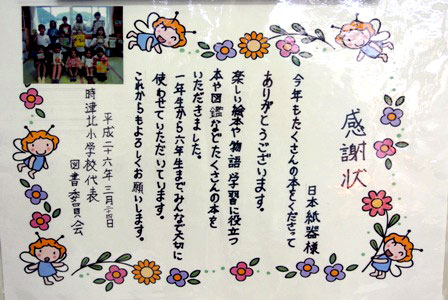 感謝状
日本紙器様
今年もたくさんの本をくださって
ありがとうございます。
楽しい絵本や物語、学習に役立つ
本や図鑑などたくさんの本を
いただきました。
一年生から六年生までみんなで大切に
使わせていただいています。
これからもよろしくお願いします。
平成二十六年三月二十四日
時津北小学校代表
図書委員会